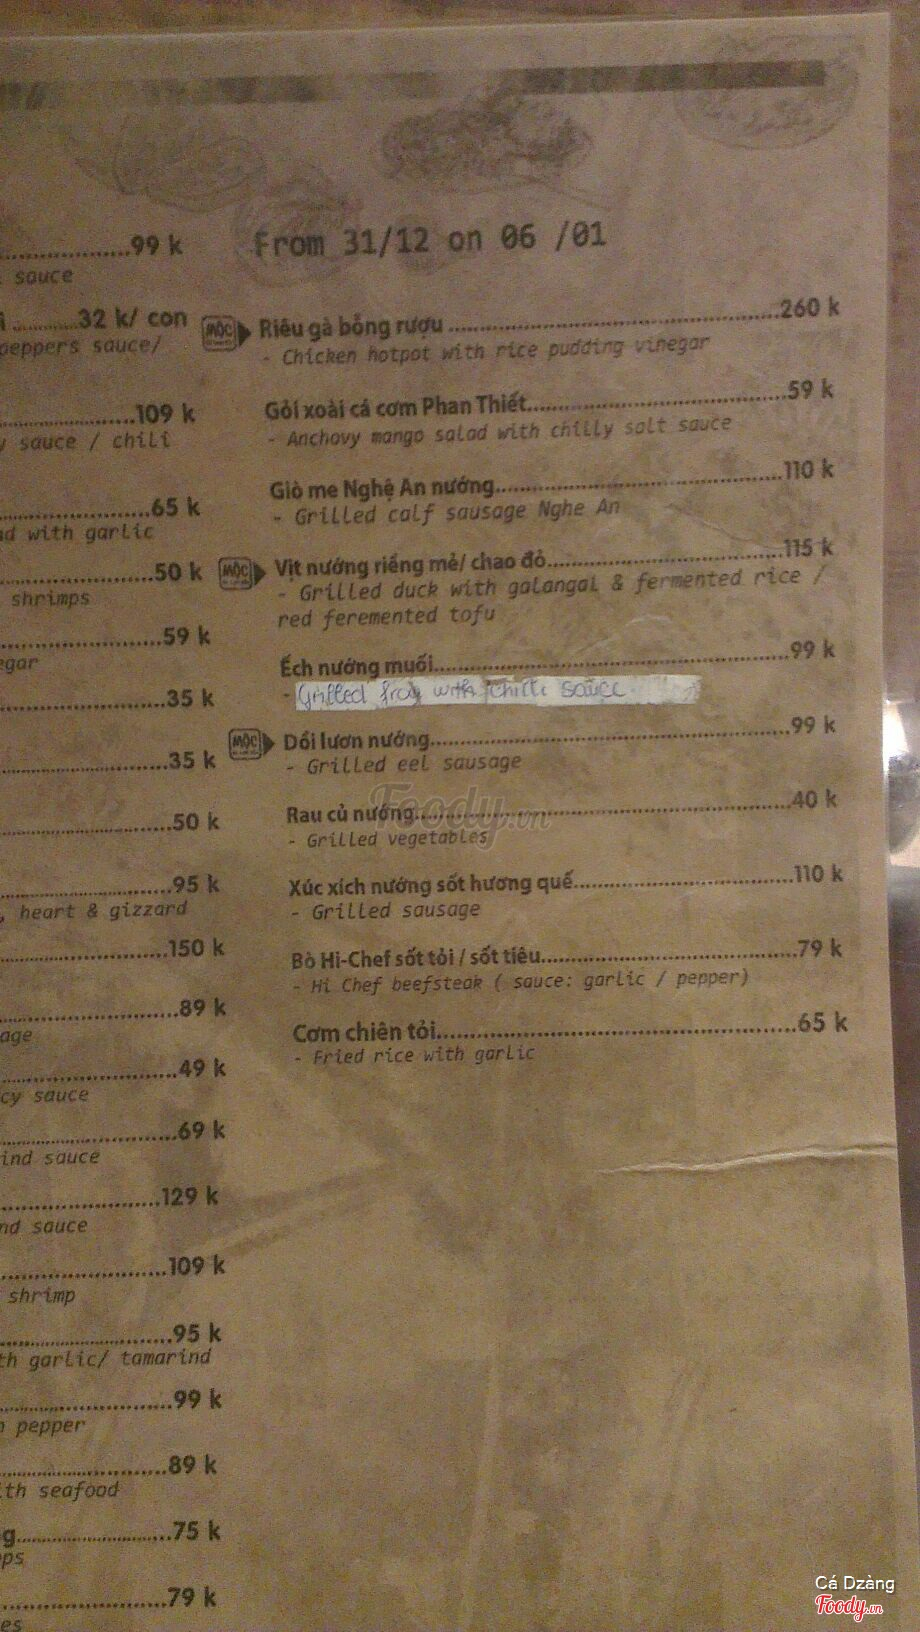 ....................99 k
sauce
..........32 k/ con
peppers sauce/
....................109 k
sauce / chili
....................65 k
with garlic
....................50 k
shrimps
....................59 k
....................35 k
....................35 k
....................50 k
....................95 k
, heart & gizzard
....................150 k
....................89 k
....................49 k
sauce
....................69 k
sauce
....................129 k
sauce
....................109 k
shrimp
....................95 k
garlic/ tamarind
....................99 k
pepper
....................89 k
seafood
....................75 k
....................79 k
From 31/12 on 06 /01
MỘC
Riêu gà bỗng rượu ....................260 k
- Chicken hotpot with rice pudding vinegar
Gỏi xoài cá cơm Phan Thiết....................59 k
- Anchovy mango salad with chilly salt sauce
Giò me Nghệ An nướng....................110 k
- Grilled calf sausage Nghe An
MỘC
Vịt nướng riềng mẻ/ chao đỏ....................115 k
- Grilled duck with galangal & fermented rice /
red feremented tofu
Ếch nướng muối....................99 k
- Grilled frog with chilli sauce
MỘC
Dồi lươn nướng....................99 k
- Grilled eel sausage
Rau củ nướng....................40 k
- Grilled vegetables
Xúc xích nướng sốt hương quế....................110 k
- Grilled sausage
Bò Hi-Chef sốt tỏi / sốt tiêu....................79 k
- Hi Chef beefsteak ( sauce: garlic / pepper)
Cơm chiên tỏi....................65 k
- Fried rice with garlic
Foody.vn
Cá Dzàng
Foody.vn